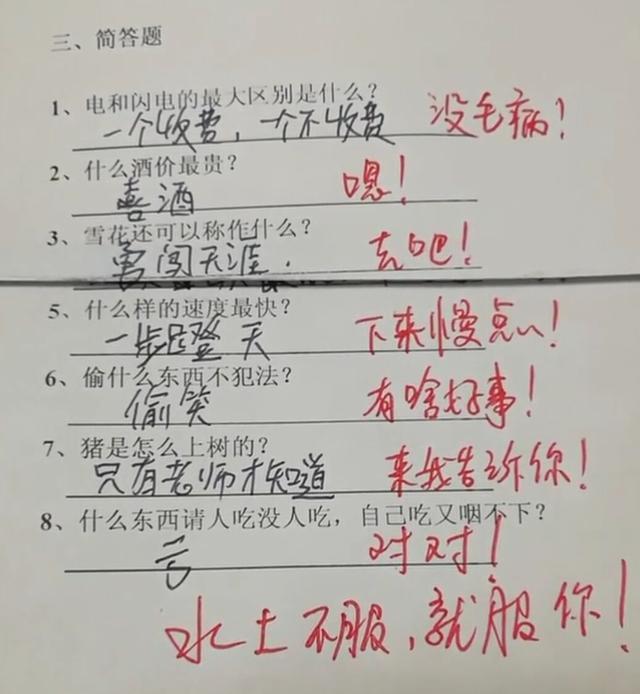 三、简答题
1、电和闪电的最大区别是什么？
一个收费，一个不收费 没毛病！
2、什么酒价最贵？
喜酒 嗯！
3、雪花还可以称作什么？
勇闯天涯. 去吧！
5、什么样的速度最快？
一步登天 下来慢点！
6、偷什么东西不犯法？
偷笑 有啥好事！
7、猪是怎么上树的？
只有老师才知道 来我告诉你！
8、什么东西请人吃没人吃，自己吃又咽不下？
亏 对对！
水土不服，就服你！